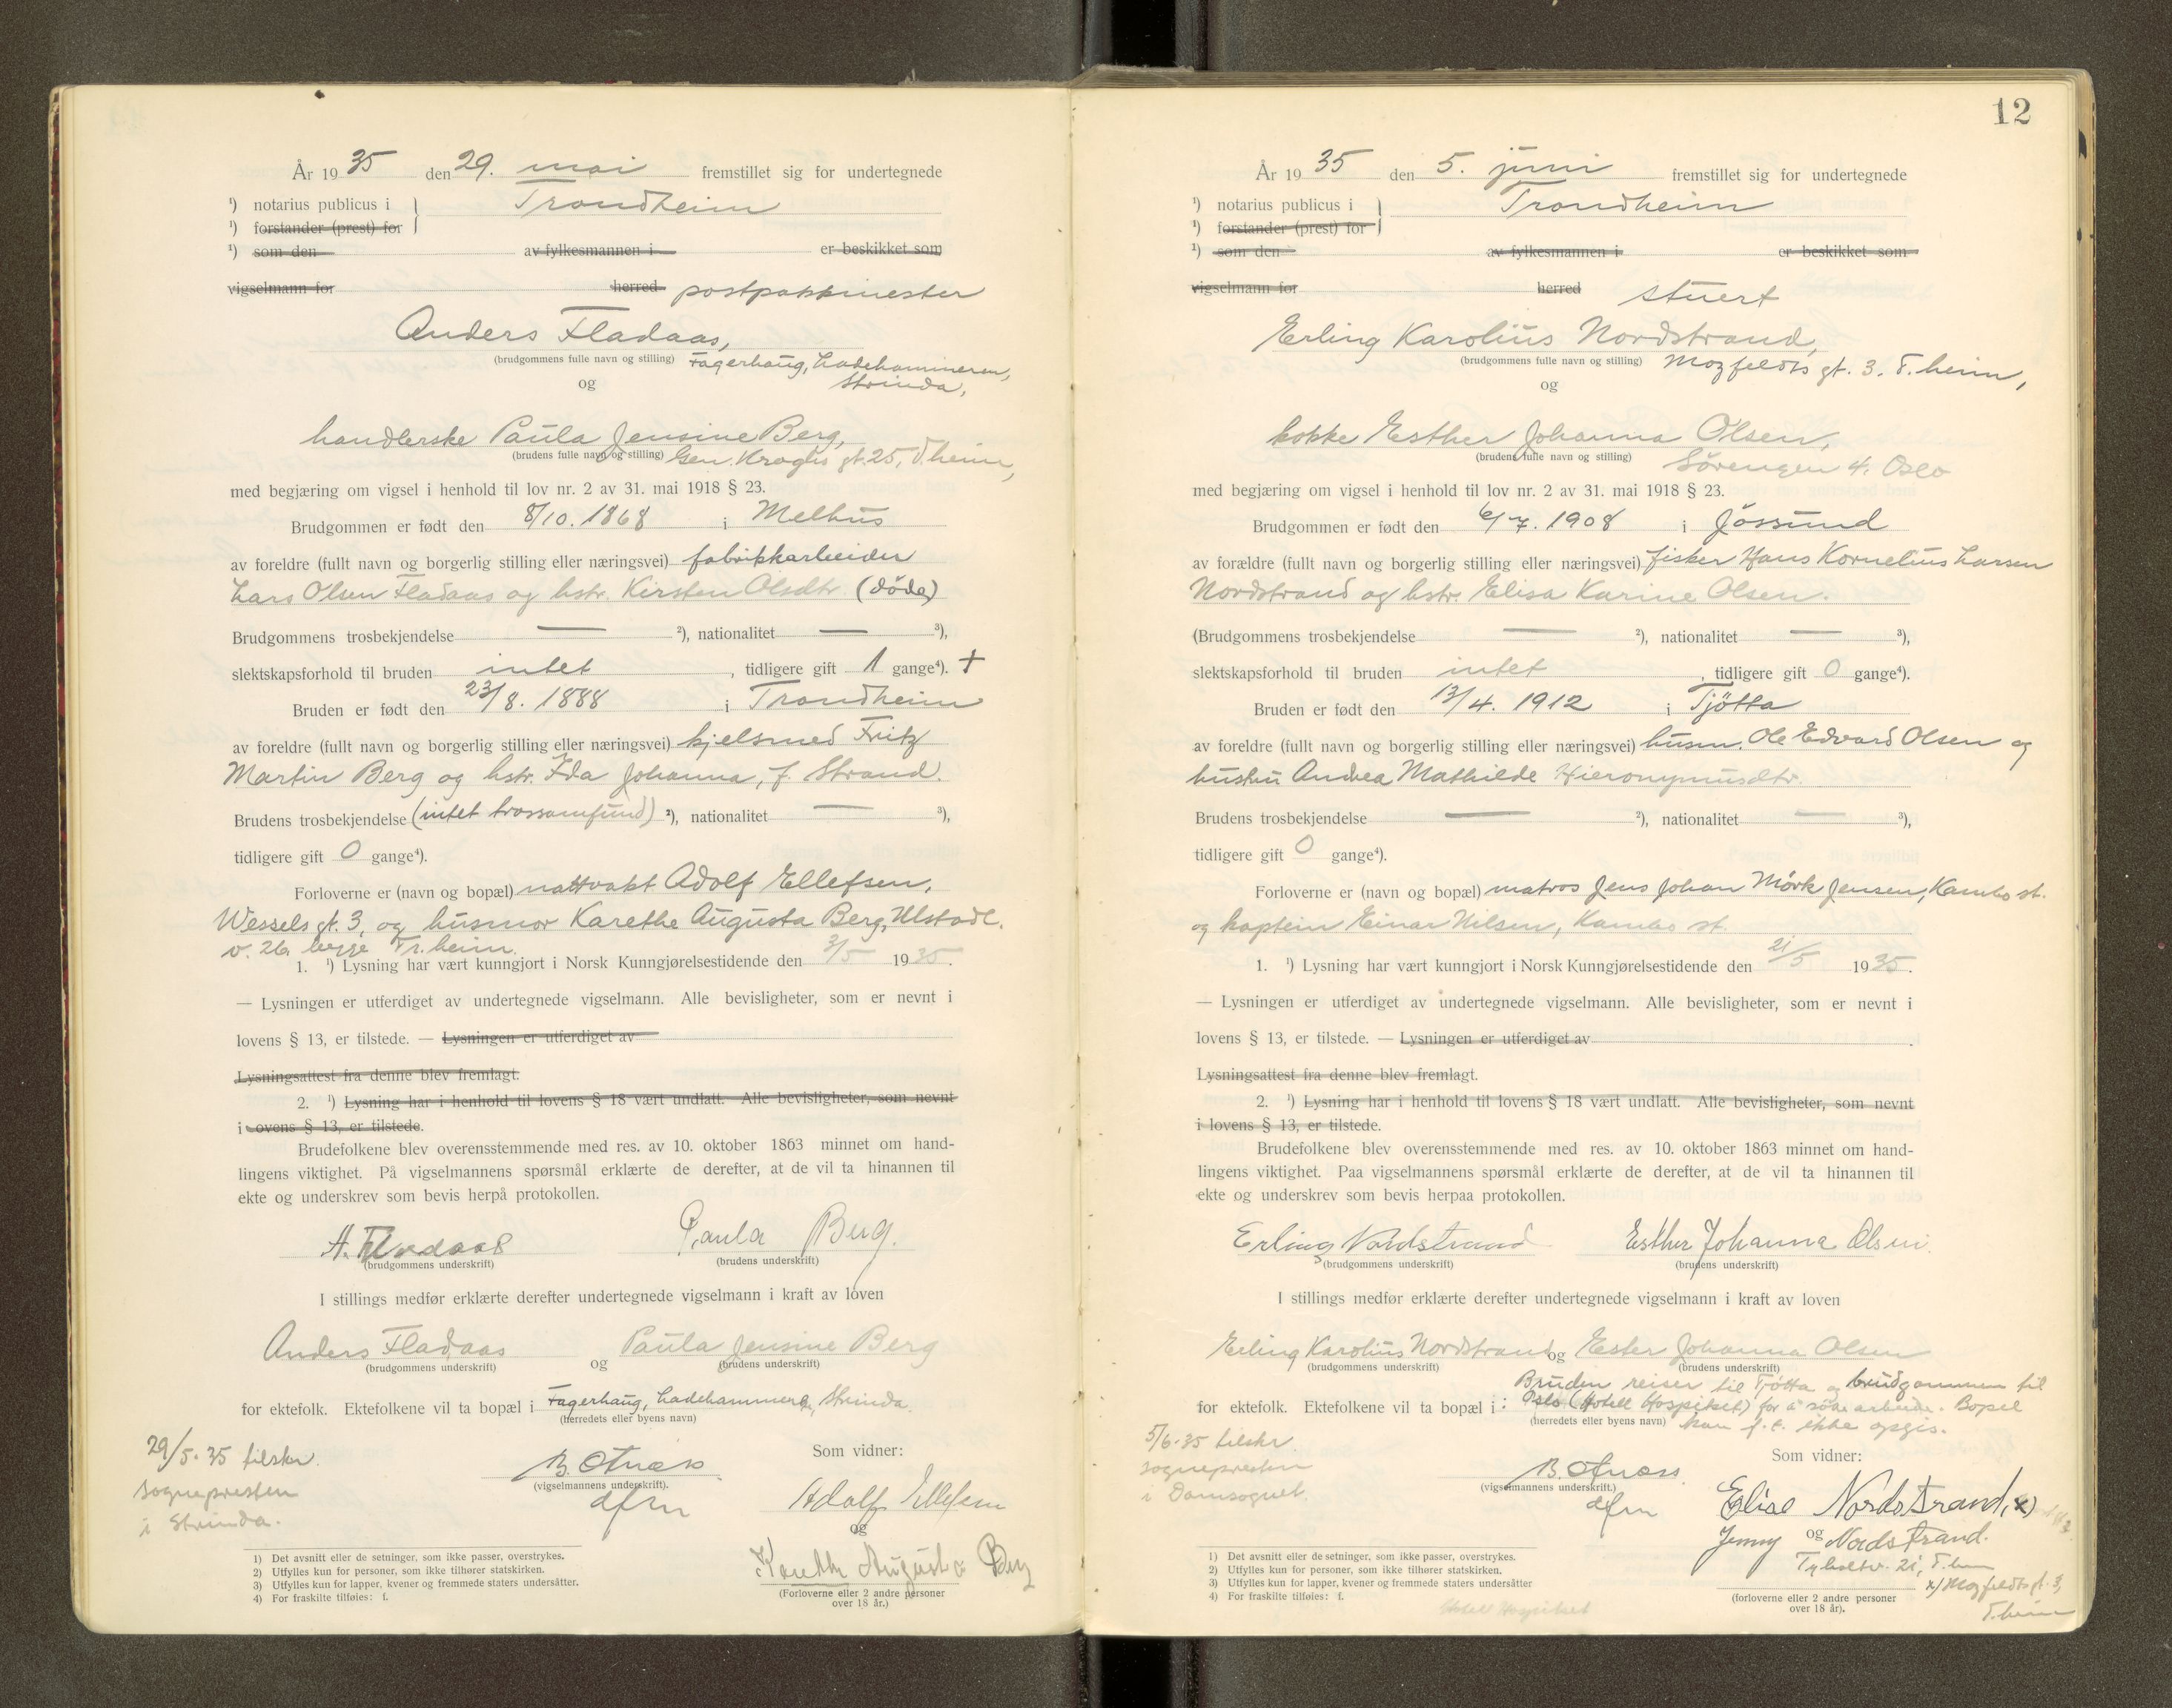 År 19 35 den 29. mai fremstillet sig for undertegnede
¹) notarius publicus i } Trondheim
¹) forstander (prest) for
¹) som den av fylkesmannen i er beskikket som
vigselmann for herred postpakkmester
Anders Fladaas,
(brudgommens fulle navn og stilling) Fagerhaug, Ladehammeren,
og Strinda,
handlerske Paula Jensine Berg,
(brudens fulle navn og stilling) Gen. Kroghs gt. 25, T.heim,
med begjæring om vigsel i henhold til lov nr. 2 av 31. mai 1918 § 23.
Brudgommen er født den 8/10. 1868 i Melhus
av foreldre (fullt navn og borgerlig stilling eller næringsvei) fabrikkarbeider
Lars Olsen Fladaas og hstr. Kirsten Olsdtr. (døde)
Brudgommens trosbekjendelse — ²), nationalitet — ³),
slektskapsforhold til bruden intet , tidligere gift 1 gange⁴). +
Bruden er født den 23/8. 1888 i Trondheim
av foreldre (fullt navn og borgerlig stilling eller næringsvei) kjelsmed Fritz
Martin Berg og hstr. Ida Johanna, f. Strand.
Brudens trosbekjendelse (intet trossamfund) ²), nationalitet — ³),
tidligere gift 0 gange⁴).
Forloverne er (navn og bopæl) nattvakt Adolf Ellefsen,
Wessels gt. 3, og husmor Karethe Augusta Berg, Ulstadl.
v. 26 begge Tr.heim.
1. ¹) Lysning har vært kunngjort i Norsk Kunngjørelsestidende den 3/5 19 35.
— Lysningen er utferdiget av undertegnede vigselmann. Alle bevisligheter, som er nevnt i
lovens § 13, er tilstede. — Lysningen er utferdiget av
Lysningsattest fra denne blev fremlagt.
2. ¹) Lysning har i henhold til lovens § 18 vært undlatt. Alle bevisligheter, som nevnt
i lovens § 13, er tilstede.
Brudefolkene blev overensstemmende med res. av 10. oktober 1863 minnet om hand-
lingens viktighet. På vigselmannens spørsmål erklærte de derefter, at de vil ta hinannen til
ekte og underskrev som bevis herpå protokollen.
A. Fladaas Paula Berg.
(brudgommens underskrift) (brudens underskrift)
I stillings medfør erklærte derefter undertegnede vigselmann i kraft av loven
Anders Fladaas og Paula Jensine Berg
(brudgommens underskrift) (brudens underskrift)
for ektefolk. Ektefolkene vil ta bopæl i Fagerhaug, Ladehammere, Strinda.
(herredets eller byens navn)
29/5.35 tilskr.
sognepresten
i Strinda.
Som vidner:
B. Otness
(vigselmannens underskrift).
dfm
Adolf Ellefsen
og
Karethe Augusta Berg
(Forloverne eller 2 andre personer
over 18 år.)
1) Det avsnitt eller de setninger, som ikke passer, overstrykes.
2) Utfylles kun for personer, som ikke tilhører statskirken.
3) Utfylles kun for lapper, kvener og fremmede staters undersåtter.
4) For fraskilte tilføies: f.
12
År 19 35 den 5. juni fremstillet sig for undertegnede
¹) notarius publicus i } Trondheim
¹) forstander (prest) for
¹) som den av fylkesmannen i er beskikket som
vigselmann for herred stuert
Erling Karolius Nordstrand,
(brudgommens fulle navn og stilling) Mozfeldts gt. 3. T.heim,
og
kokke Esther Johanna Olsen,
(brudens fulle navn og stilling) Sørengen 4. Oslo
med begjæring om vigsel i henhold til lov nr. 2 av 31. mai 1918 § 23.
Brudgommen er født den 6/7. 1908 i Jøssund
av forældre (fullt navn og borgerlig stilling eller næringsvei) fisker Hans Kornelius Larsen
Nordstrand og hstr. Elisa Karine Olsen.
(Brudgommens trosbekjendelse — ²), nationalitet — ³),
slektskapsforhold til bruden intet , tidligere gift 0 gange⁴).
Bruden er født den 13/4. 1912 i Tjøtta
av foreldre (fullt navn og borgerlig stilling eller næringsvei) husm. Ole Edvard Olsen og
hustru Andrea Mathilde Hieronymusdtr.
Brudens trosbekjendelse — ²), nationalitet — ³),
tidligere gift 0 gange⁴).
Forloverne er (navn og bopæl) matros Jens Johan Mørk Jensen, Kambo st.
og kaptein Einar Nilsen, Kambo st.
1. ¹) Lysning har vært kunngjort i Norsk Kunngjørelsestidende den 21/5 19 35.
— Lysningen er utferdiget av undertegnede vigselmann. Alle bevisligheter, som er nevnt i
lovens § 13, er tilstede. — Lysningen er utferdiget av .
Lysningsattest fra denne blev fremlagt.
2. ¹) Lysning har i henhold til lovens § 18 vært undlatt. Alle bevisligheter, som nevnt
i lovens § 13, er tilstede.
Brudefolkene blev overensstemmende med res. av 10. oktober 1863 minnet om hand-
lingens viktighet. Paa vigselmannens spørsmål erklærte de derefter, at de vil ta hinannen til
ekte og underskrev som bevis herpaa protokollen.
Erling Nordstrand Esther Johanna Olsen.
(brudgommens underskrift) (brudens underskrift)
I stillings medfør erklærte derefter undertegnede vigselmann i kraft av loven
Erling Karolius Nordstrand og Ester Johanna Olsen
(brudgommens underskrift) (brudens underskrift)
Bruden reiser til Tjøtta og brudgommen til
for ektefolk. Ektefolkene vil ta bopæl i : Oslo (Hotell Hospitset) for å søke arbeide. Bopel
(herredets eller byens navn) kan f. t. ikke opgis.
5/6.35 tilskr.
sognepresten
i Domsognet.
Som vidner:
B. Otness.
(vigselmannens underskrift.)
dfm
Elise Nordstrand, x)
Jenny og Nordstrand.
Tyholtv. 21, T.hm
x) Mozfeldts gt. 3,
T.heim
(forloverne eller 2 andre personer
over 18 år).
1) Det avsnitt eller de setninger, som ikke passer, overstrykes.
2) Utfylles kun for personer, som ikke tilhører statskirken.
3) Utfylles kun for lapper, kvener og fremmede staters undersåtter
4) For fraskilte tilføies: f.
Hotell Hospitset